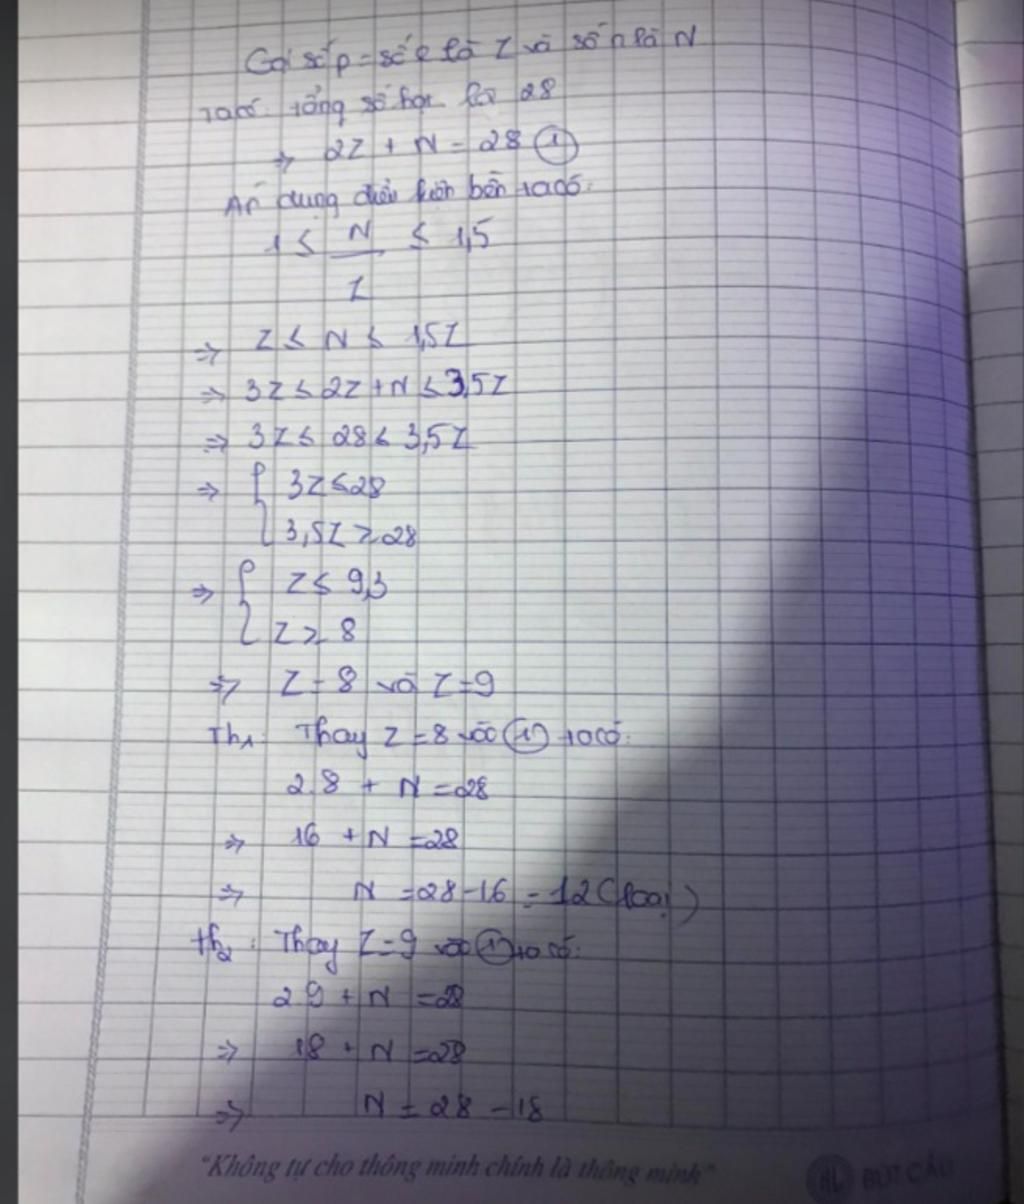 Gọi số p = số e là Z và số n là N
Ta có: tổng số hạt là 28
=> 2Z + N = 28 ①
Áp dụng điều kiện bền ta có:
1 ≤ N/Z ≤ 1,5
=> Z ≤ N ≤ 1,5Z
=> 3Z ≤ 2Z + N ≤ 3,5Z
=> 3Z ≤ 28 ≤ 3,5Z
=> { 3Z ≤ 28
3,5Z ≥ 28
=> { Z ≤ 9,3
Z ≥ 8
=> Z = 8 và Z = 9
Th1: Thay Z = 8 vào ① ta có:
2.8 + N = 28
=> 16 + N = 28
=> N = 28 - 16 = 12 (loại)
Th2: Thay Z = 9 vào ① ta có:
2 9 + N = 28
=> 18 + N = 28
=> N = 28 - 18
"Không tự cho thông minh chính là thông minh"
BÚT CẦU